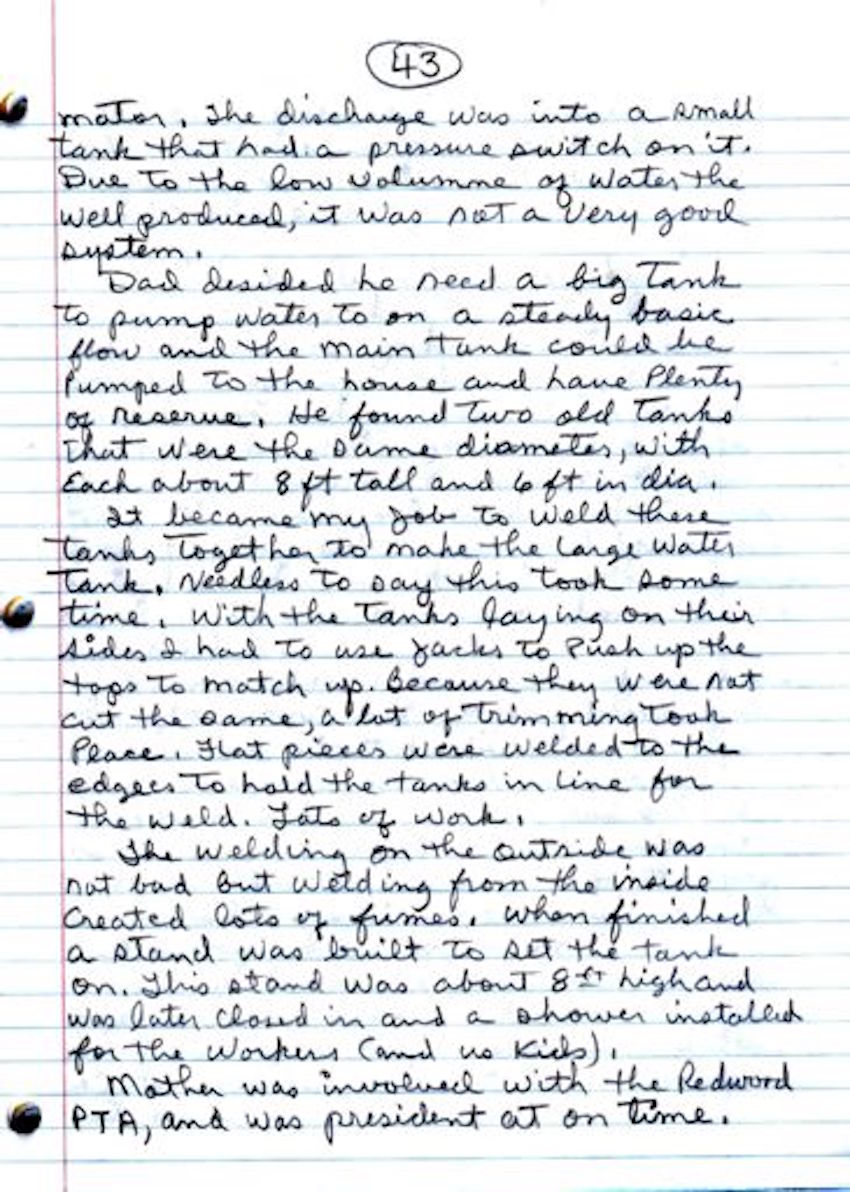 43
motor. The discharge was into a small
tank that had a pressure switch on it.
Due to the low volumne of water the
well produced, it was not a very good
system.
Dad desided he need a big tank
to pump water to on a steady basic
flow and the main tank could be
pumped to the house and have plenty
of reserve. He found two old tanks
that were the same diameter, with
Each about 8 ft tall and 6 ft in dia.
It became my job to weld these
tanks together to make the large water
tank. Needless to say this took some
time. With the tanks laying on their
sides I had to use jacks to push up the
tops to match up. Because they were not
cut the same, a lot of trimming took
place. Flat pieces were welded to the
edgees to hold the tanks in line for
the weld. Lots of work.
The welding on the outside was
not bad but welding from the inside
created lots of fumes. When finished
a stand was built to set the tank
on. This stand was about 8 ft high and
was later closed in and a shower installed
for the workers (and us kids).
Mother was involved with the Redwood
PTA, and was president at on time.